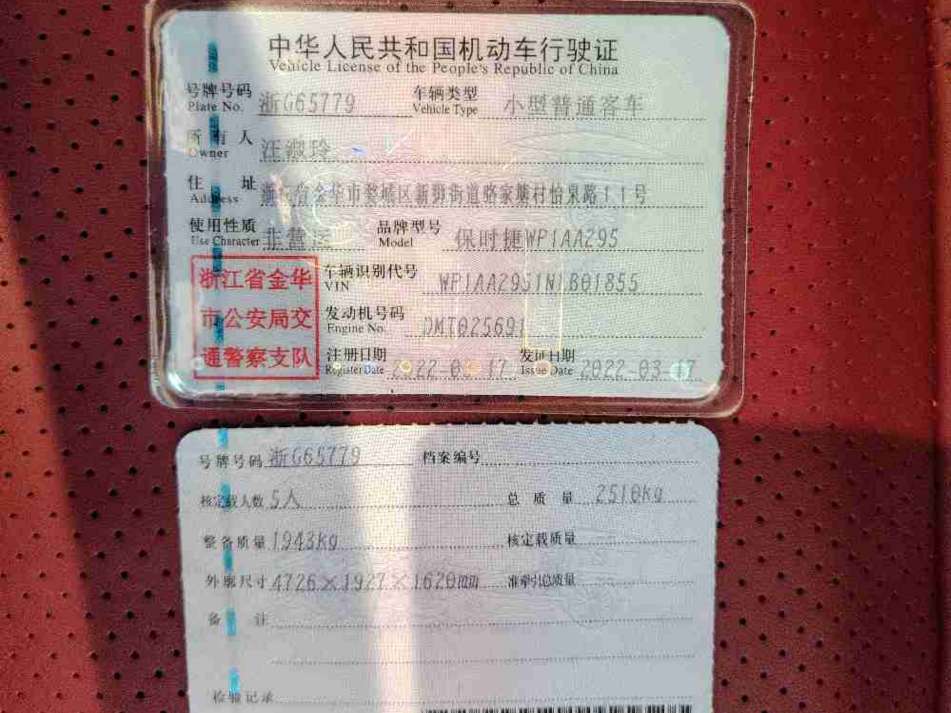 中华人民共和国机动车行驶证
Vehicle License of the People's Republic of China
号牌号码 浙G65779 车辆类型 小型普通客车
Plate No. Vehicle Type
所有人 汪淑玲
Owner
住址 浙江省金华市婺城区新狮街道骆家塘村怡泉路11号
Address
使用性质 非营运 品牌型号 保时捷WP1AA295
Use Character Model
浙江省金华
市公安局交
通警察支队
车辆识别代号 WP1AA2951NLB01855
VIN
发动机号码 DMT025691
Engine No.
注册日期 2022-03-17 发证日期 2022-03-17
Register Date Issue Date
号牌号码 浙G65779 档案编号
核定载人数 5人 总质量 2510kg
整备质量 1943kg 核定载质量
外廓尺寸 4726×1927×1620mm 准牵引总质量
备注
检验记录